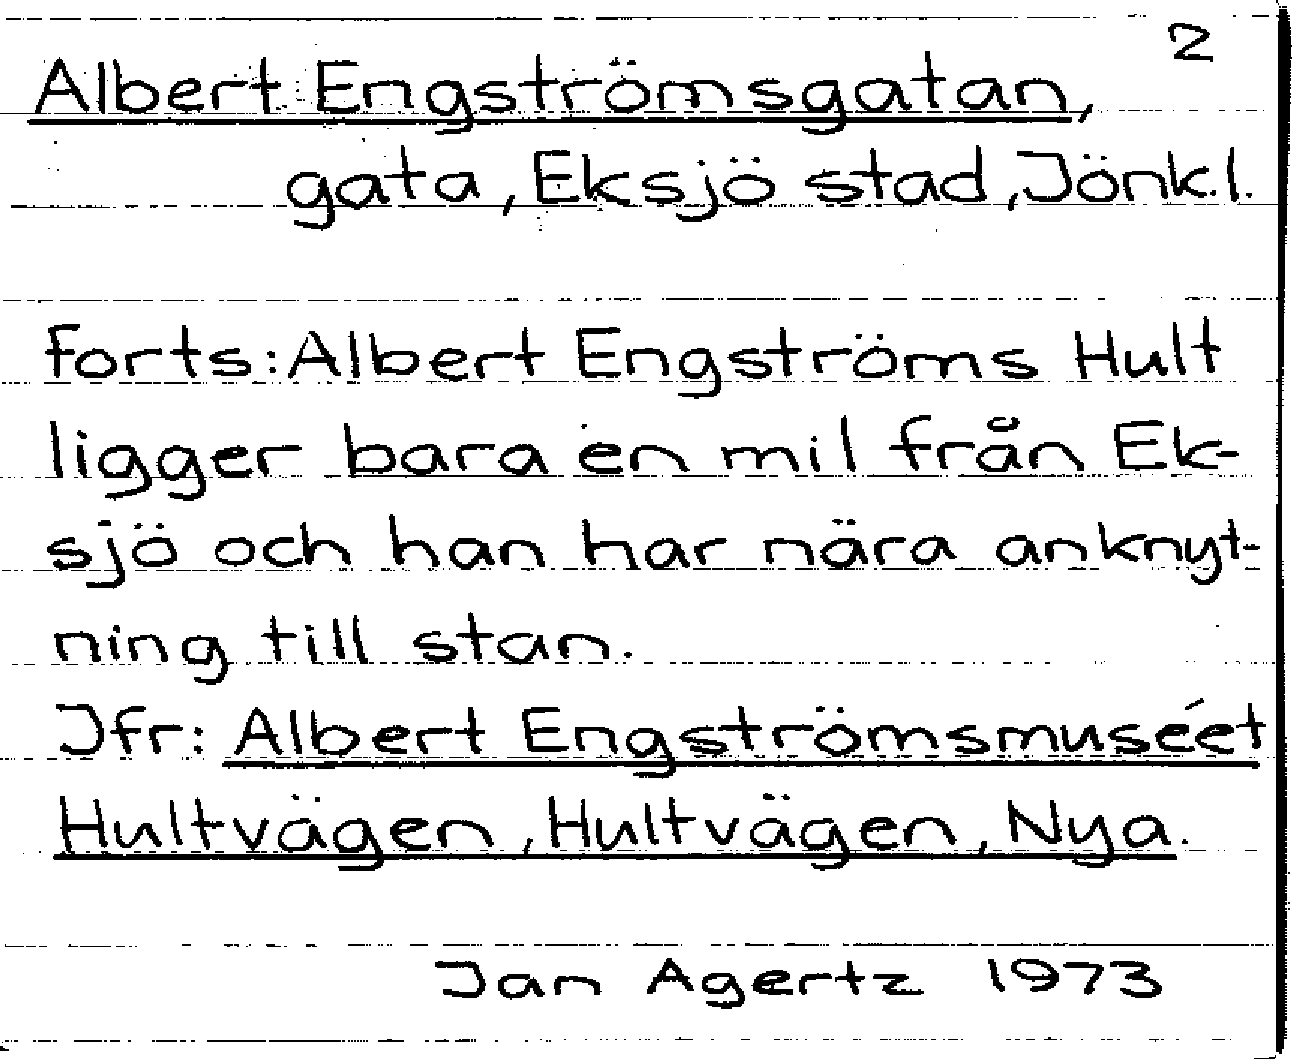 2
Albert Engströmsgatan,
gata, Eksjö stad, Jönk.l.
forts: Albert Engströms Hult
ligger bara en mil från Ek-
sjö och han har nära anknyt-
ning till stan.
Jfr: Albert Engströmsmuséet
Hultvägen, Hultvägen, Nya.
Jan Agertz 1973